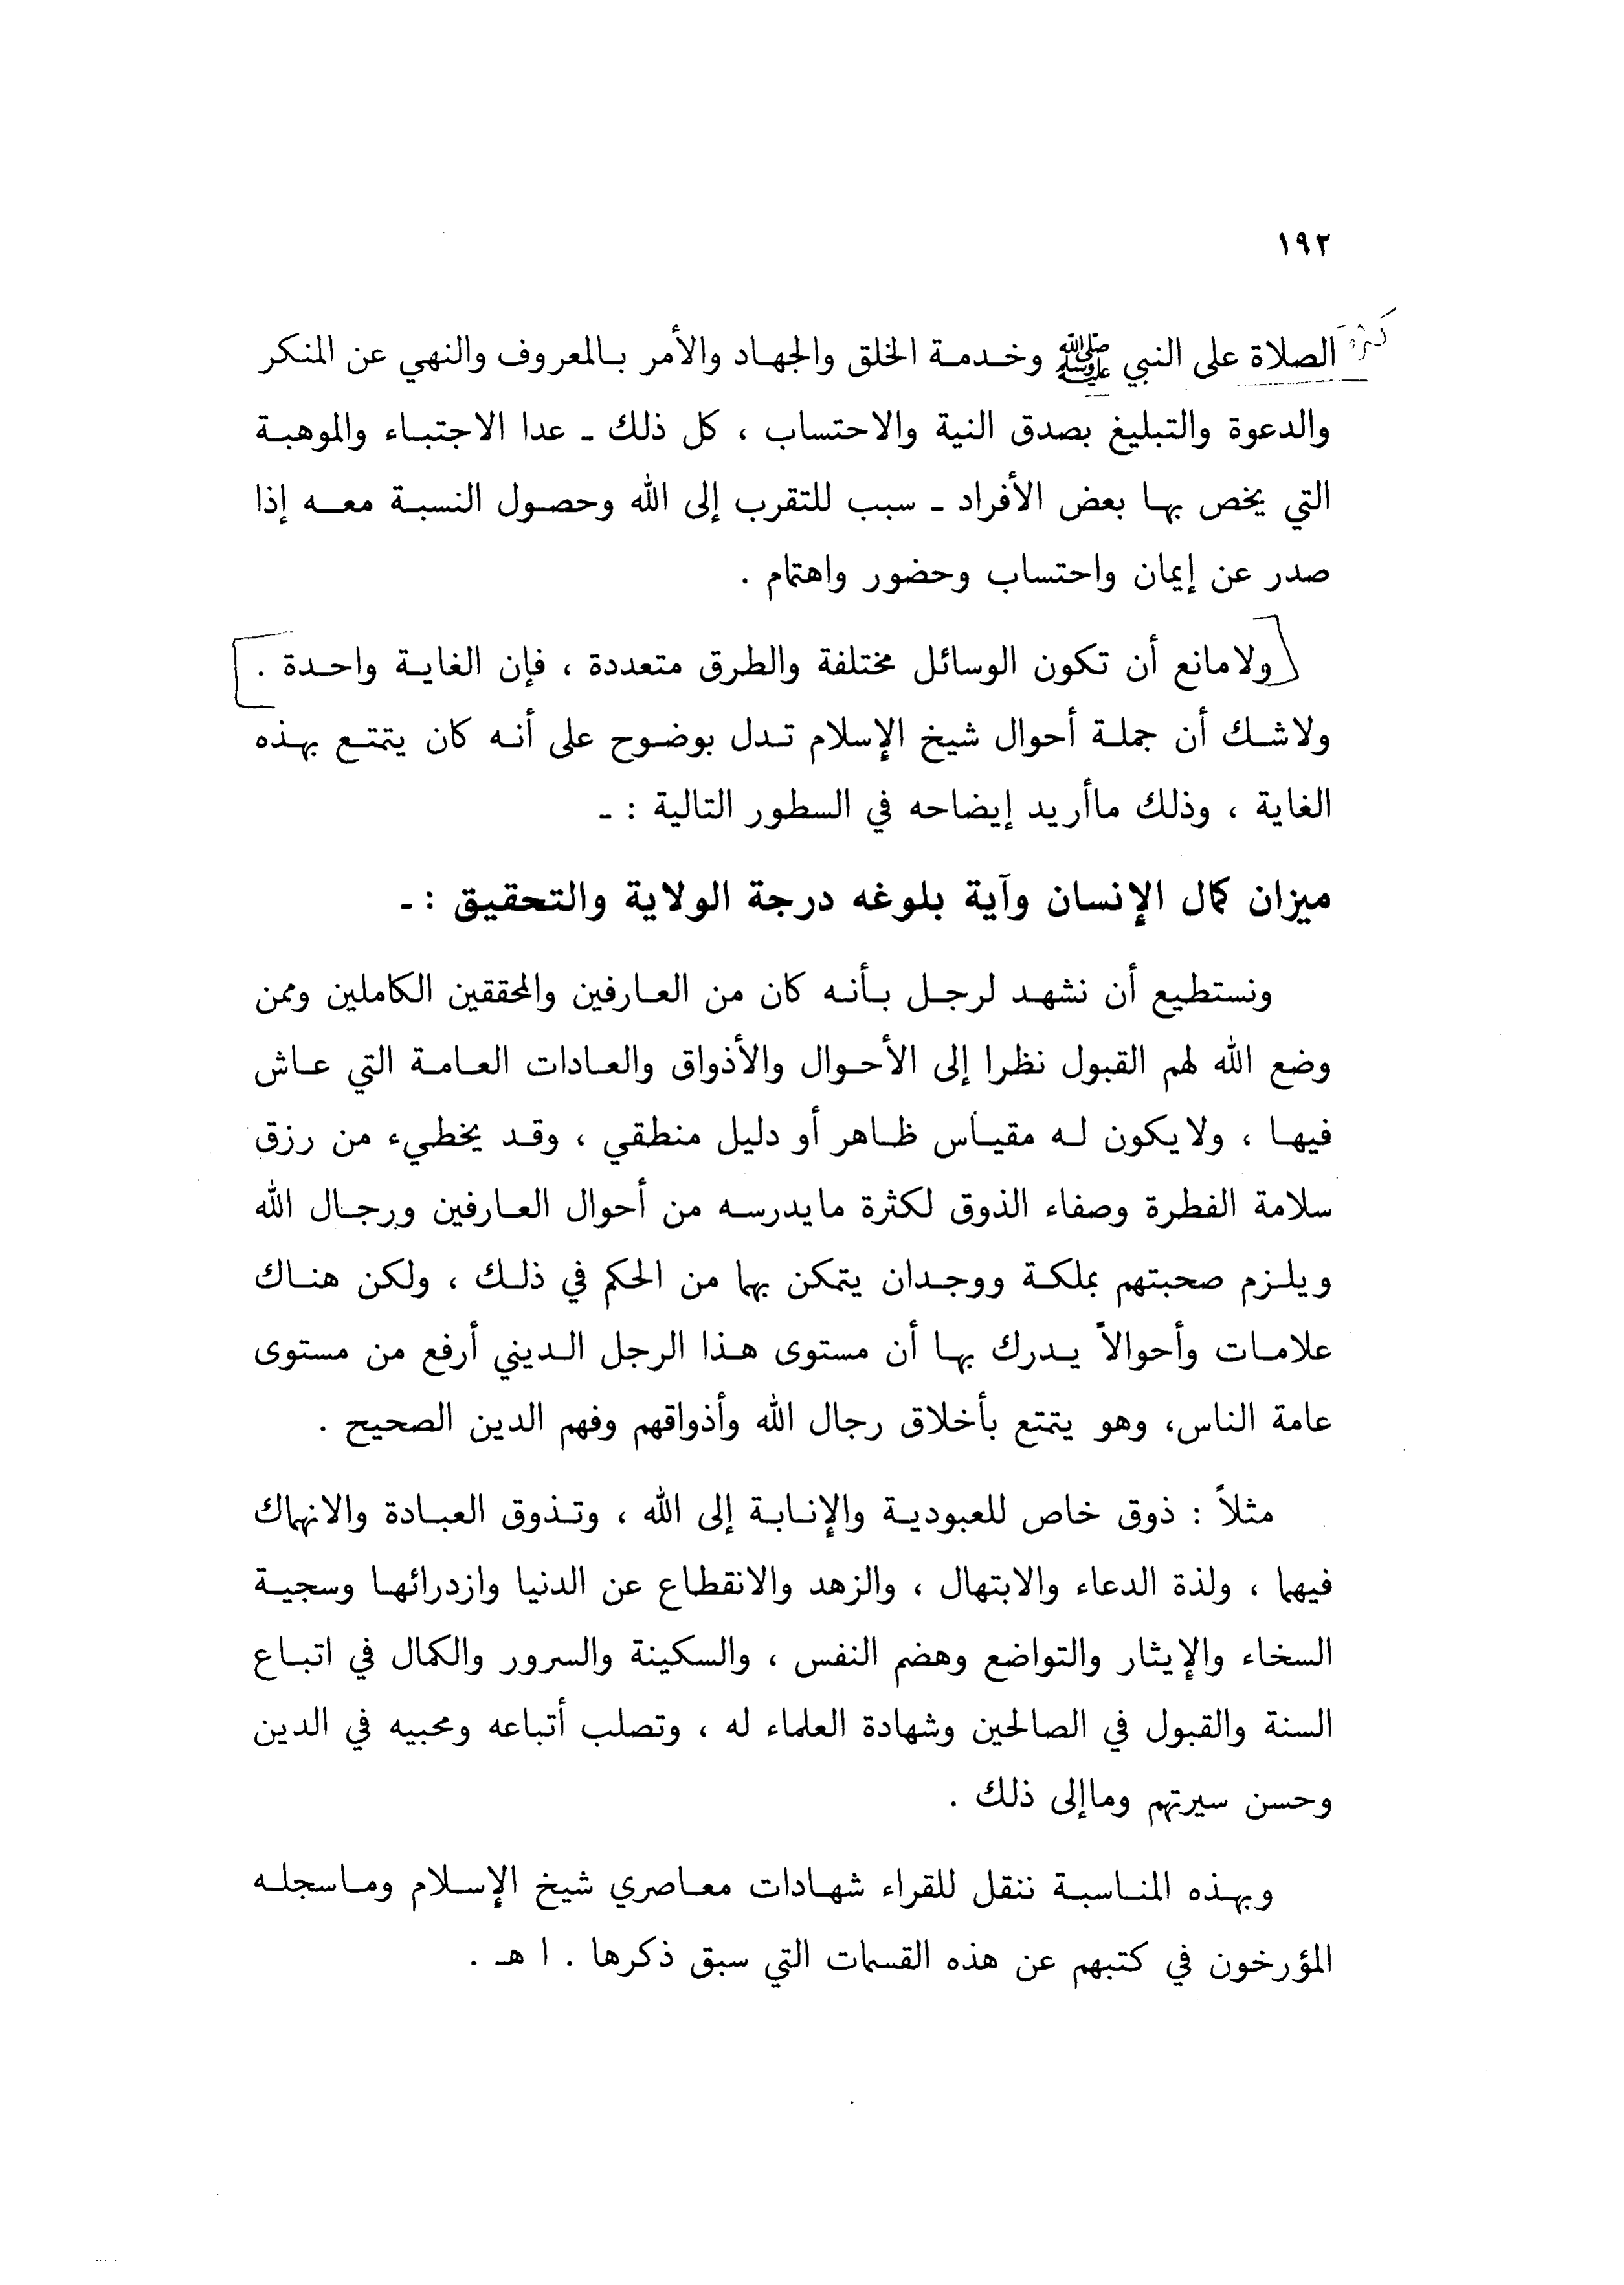 ١٩٢
كثرة الصلاة على النبي ﷺ وخدمة الخلق والجهاد والأمر بالمعروف والنهي عن المنكر
والدعوة والتبليغ بصدق النية والاحتساب ، كل ذلك ـ عدا الاجتباء والموهبة
التي يخص بها بعض الأفراد ـ سبب للتقرب إلى الله وحصول النسبة معه إذا
صدر عن إيمان واحتساب وحضور واهتمام .
ولامانع أن تكون الوسائل مختلفة والطرق متعددة ، فإن الغاية واحدة .
ولاشك أن جملة أحوال شيخ الإسلام تدل بوضوح على أنه كان يتمتع بهذه
الغاية ، وذلك ماأريد إيضاحه في السطور التالية : ـ
ميزان كمال الإنسان وآية بلوغه درجة الولاية والتحقيق : ـ
ونستطيع أن نشهد لرجل بأنه كان من العارفين والمحققين الكاملين وممن
وضع الله لهم القبول نظرا إلى الأحوال والأذواق والعادات العامة التي عاش
فيها ، ولايكون له مقياس ظاهر أو دليل منطقي ، وقد يخطيء من رزق
سلامة الفطرة وصفاء الذوق لكثرة مايدرسه من أحوال العارفين ورجال الله
ويلزم صحبتهم بملكة ووجدان يتمكن بهما من الحكم في ذلك ، ولكن هناك
علامات وأحوالاً يدرك بها أن مستوى هذا الرجل الديني أرفع من مستوى
عامة الناس، وهو يتمتع بأخلاق رجال الله وأذواقهم وفهم الدين الصحيح .
مثلاً : ذوق خاص للعبودية والإنابة إلى الله ، وتذوق العبادة والانهماك
فيهما ، ولذة الدعاء والابتهال ، والزهد والانقطاع عن الدنيا وازدرائها وسجية
السخاء والإيثار والتواضع وهضم النفس ، والسكينة والسرور والكمال في اتباع
السنة والقبول في الصالحين وشهادة العلماء له ، وتصلب أتباعه ومحبيه في الدين
وحسن سيرتهم وماإلى ذلك .
وبهذه المناسبة ننقل للقراء شهادات معاصري شيخ الإسلام وماسجله
المؤرخون في كتبهم عن هذه القسمات التي سبق ذكرها . ا هـ .